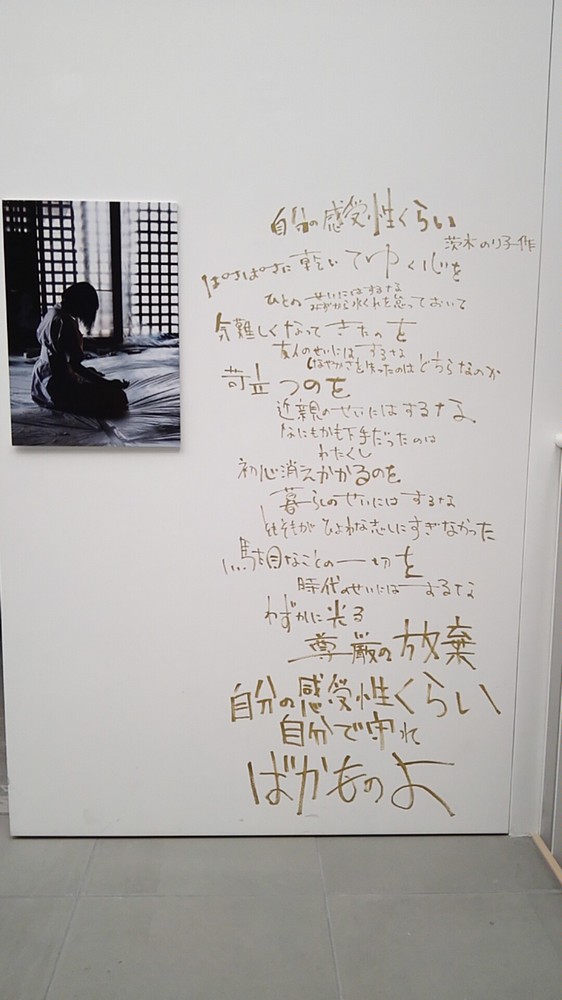 自分の感受性くらい
茨木のり子作
ぱさぱさに乾いてゆく心を
ひとのせいにはするな
みずから水くれを怠っておいて
気難しくなってきたのを
友人のせいにはするな
しなやかさを失ったのはどちらなのか
苛立つのを
近親のせいにはするな
なにもかも下手だったのは
わたくし
初心消えかかるのを
暮らしのせいにはするな
そもそもがひよわな志しにすぎなかった
駄目なことの一切を
時代のせいにはするな
わずかに光る
尊厳の放棄
自分の感受性くらい
自分で守れ
ばかものよ